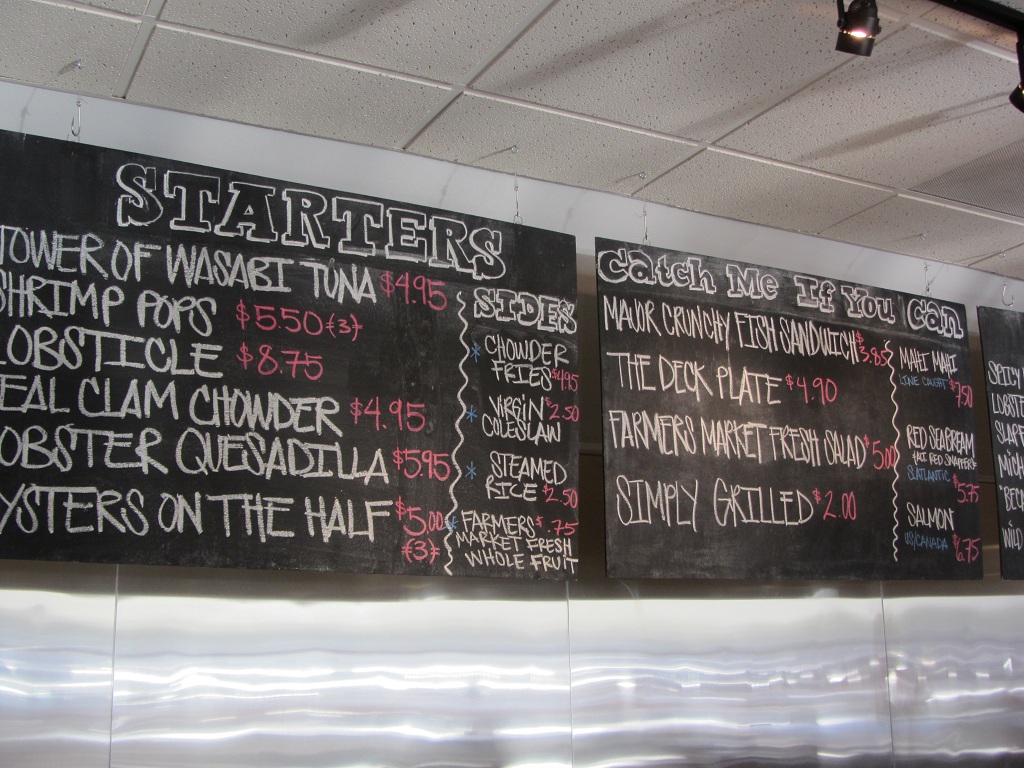 STARTERS
TOWER OF WASABI TUNA $4.95
SHRIMP POPS $5.50 (3)
LOBSTICLE $8.75
EAL CLAM CHOWDER $4.95
LOBSTER QUESADILLA $5.95
YSTERS ON THE HALF $5.00
(3)
SIDES
* CHOWDER
FRIES $4.95
* VIRGIN $2.50
COLESLAW
* STEAMED
RICE $2.50
* FARMERS $.75
MARKET FRESH
WHOLE FRUIT
Catch Me If You Can
MAJOR CRUNCHY FISH SANDWICH $3.85
THE DECK PLATE $4.90
FARMERS MARKET FRESH SALAD $5.00
SIMPLY GRILLED $2.00
MAHI MAHI
LINE CAUGHT $7.50
RED SEABREAM
S.ATLANTIC $5.75
SALMON
US/CANADA $6.75
SPICY
LOBSTE
WILD